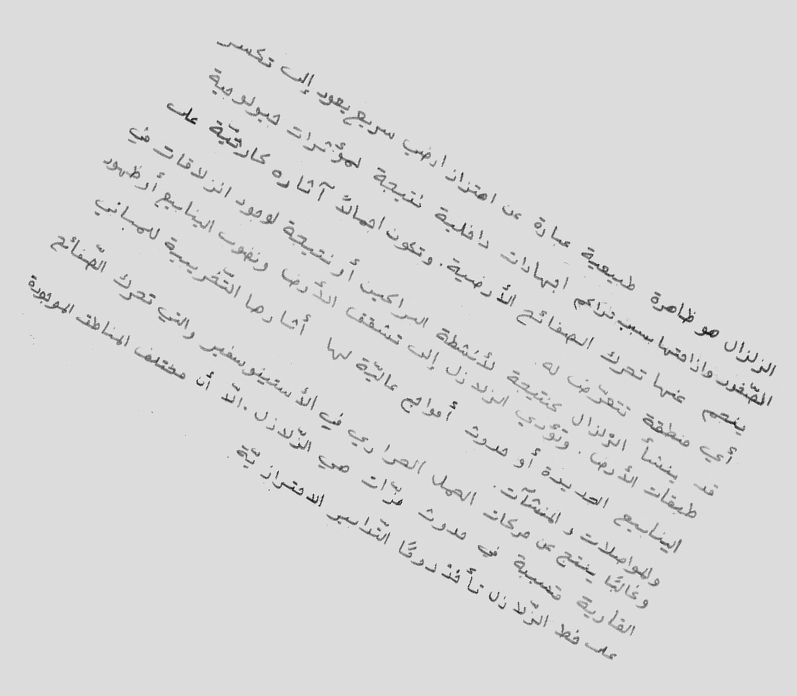 الزلزال هو ظاهرة طبيعية عبارة عن اهتزاز ارضي سريع يعود إلى تكسر
الصّخور وإزاحتها بسبب تراكم اجهادات داخلية نتيجة لمؤثرات جيولوجية
ينجم عنها تحرك الصفائح الأرضية. وتكون اجمالاً آثاره كارثيّة على
أي منطقة تتعرّض له.
قد ينشأ الزلزال كنتيجة لأنشطة البراكين أو نتيجة لوجود انزلاقات في
طبقات الأرض. وتؤدي الزلازل إلى تشقق الأرض ونضوب الينابيع أو ظهور
الينابيع الجديدة أو حدوث أمواج عاليّة لها أثارها التّخريبية للمباني
والمواصلات والمنشآت.
وغالبًا ينتج عن حركات الحمل الحراري في الأستينوسفير والتي تحرك الصّفائح
القارية متسببة في حدوث هزّات هي الزّلازل. الّا أن مختلف المناطق الموجودة
على خط الزّلازل تأخذ دومًا التّدابير الاحترازيّة.